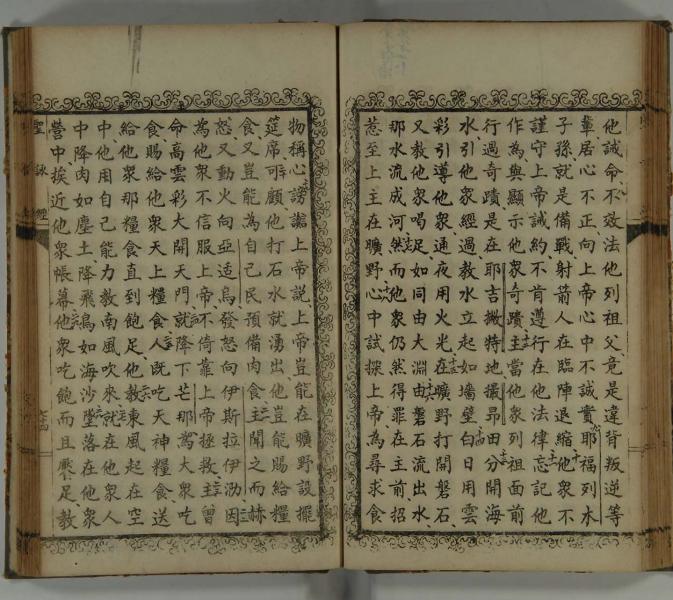 他誡命不效法他列祖父竟是違背叛逆等
輩居心不正向上帝心中不誠實耶福列木
子孫就是備戰射箭人在臨陣退縮他衆不
謹守上帝誡約不肯遵行在他法律忘記他
作為與顯示他衆奇蹟主當他衆列祖面前
行過奇蹟是在耶吉撇特地撮昂田分開海
水引他衆經過教水立起如墻壁白日用雲
彩引導他衆通夜用火光在曠野打開磐石
又教他衆喝足如同由大淵由磐石流出水
那水流成河然而他衆仍然得罪在主前招
惹至上主在曠野心中試探上帝為尋求食
物稱心謗讟上帝説上帝豈能在曠野設擺
筵席可顧他打石水就湧出他豈能賜給糧
食又豈能為自己民預備肉食主聞之而赫
怒又動火向亞适烏發怒向伊斯拉伊泐因
為他衆不信服上帝不倚靠上帝拯救主曾
命高雲彩大開天門就降下芒那駕大衆吃
食賜給他衆天上糧食人既吃天神糧食送
給他衆那糧食直到飽足他教東風起在空
中他用自己能力教南風吹來就在他衆人
中降肉如塵土降飛鳥如海沙墜落在他衆
營中挨近他衆帳幕他衆吃飽而且饜足教
聖詠經